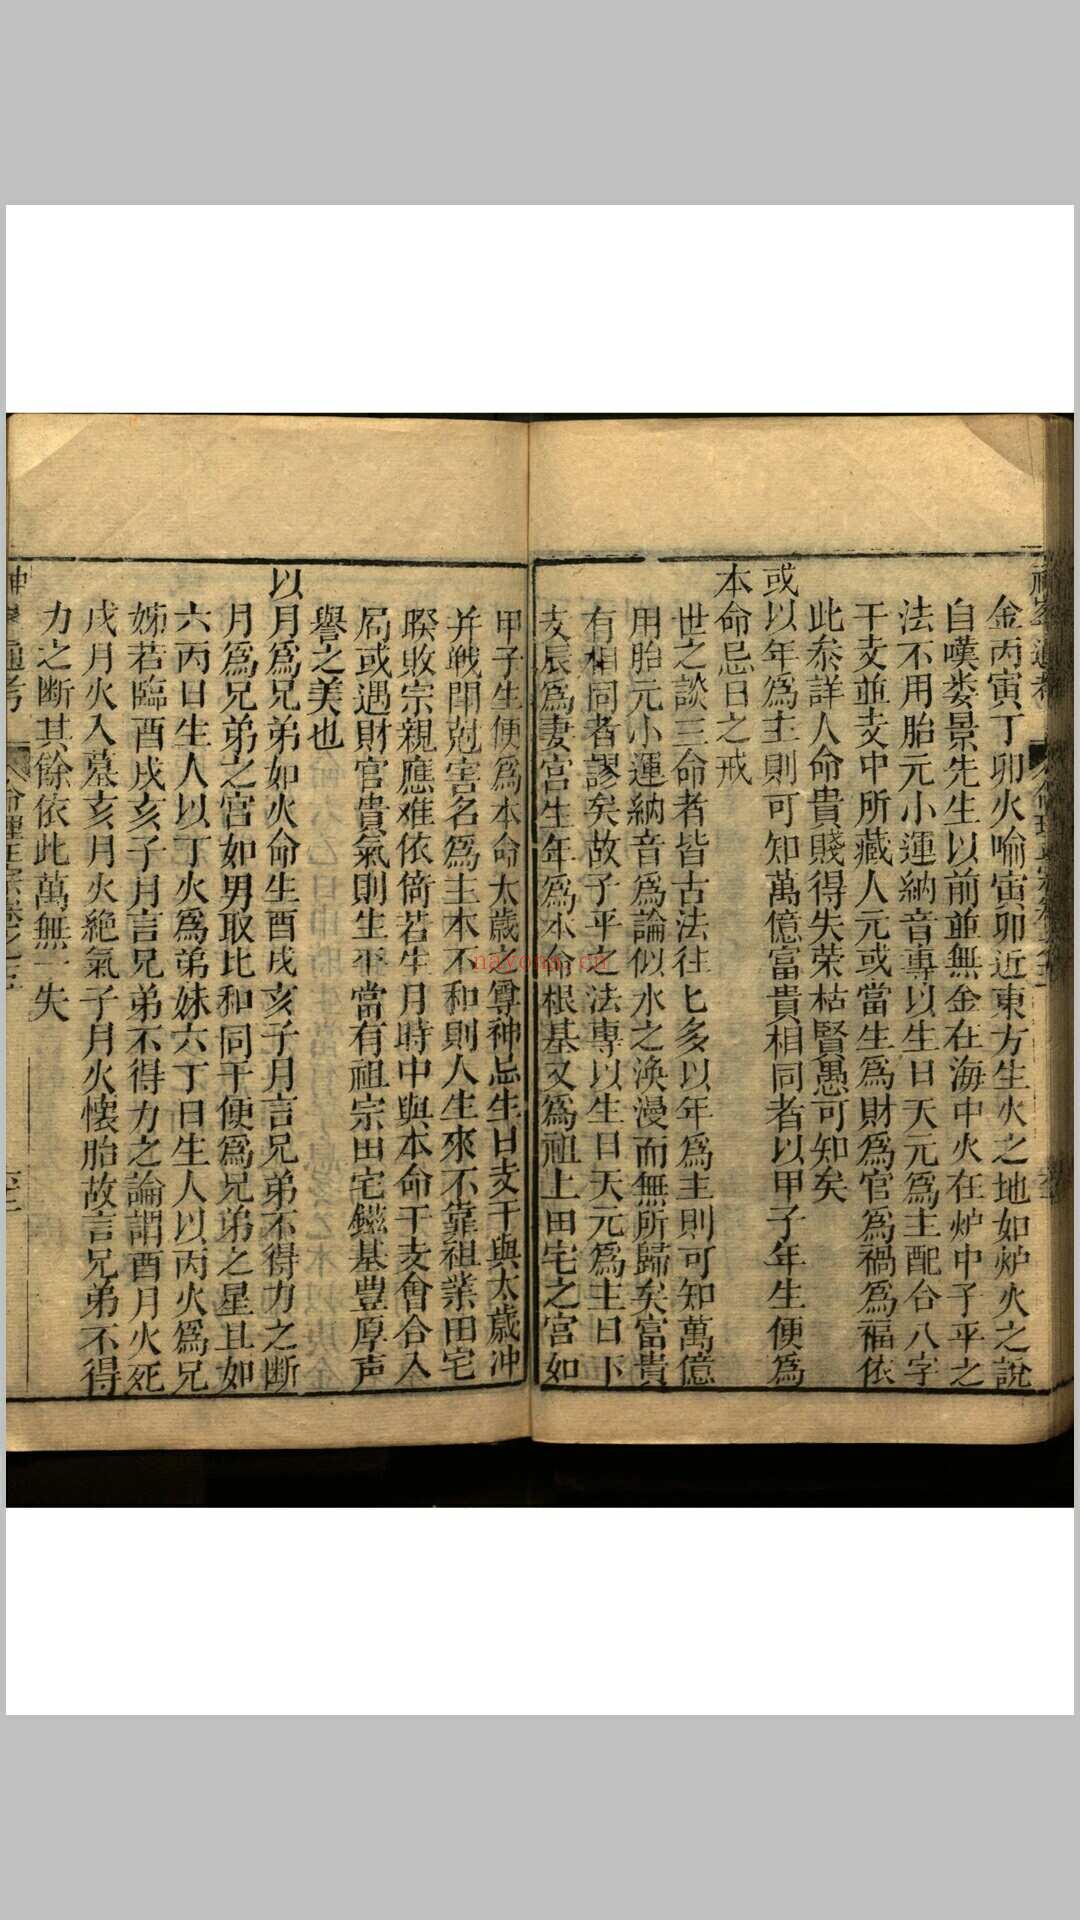 金丙寅丁卯火喻寅卯近東方生火之地如炉火之說
自嘆娄景先生以前並無金在海中火在炉中子平之
法不用胎元小運納音專以生日天元爲主配合八字
干支並支中所藏人元或當生爲財爲官爲禍爲福依
此叅詳人命貴賤得失荣枯賢愚可知矣
或以年爲主則可知萬億富貴相同者以甲子年生便爲
本命忌日之戒
世之談三命者皆古法往匕多以年爲主則可知萬億
用胎元小運納音爲論似水之渙漫而無所歸矣富貴
有相同者謬矣故子平之法專以生日天元爲主日下
支辰爲妻宮生年爲本命根基又爲祖上田宅之宮如
甲子生便爲本命太歲之尊神忌生日支干與太歲冲
并戦閗尅害名爲主本不和則人生來不靠祖業田宅
暌敗宗親應难依倚若生月時中與本命干支會合入
局或遇財官貴氣則生平當有祖宗田宅鎡基豊厚声
譽之美也
以月爲兄弟如火命生酉戌亥子月言兄弟不得力之断
月爲兄弟之宮如男取比和同干便爲兄弟之星且如
六丙日生人以丁火爲弟妹六丁日生人以丙火爲兄
姊若臨酉戌亥子月言兄弟不得力之論謂酉月火死
戌月火入墓亥月火絶氣子月火懷胎故言兄弟不得
力之断其餘依此萬無一失
神峯通考 命理正宗卷之
nayona.cn